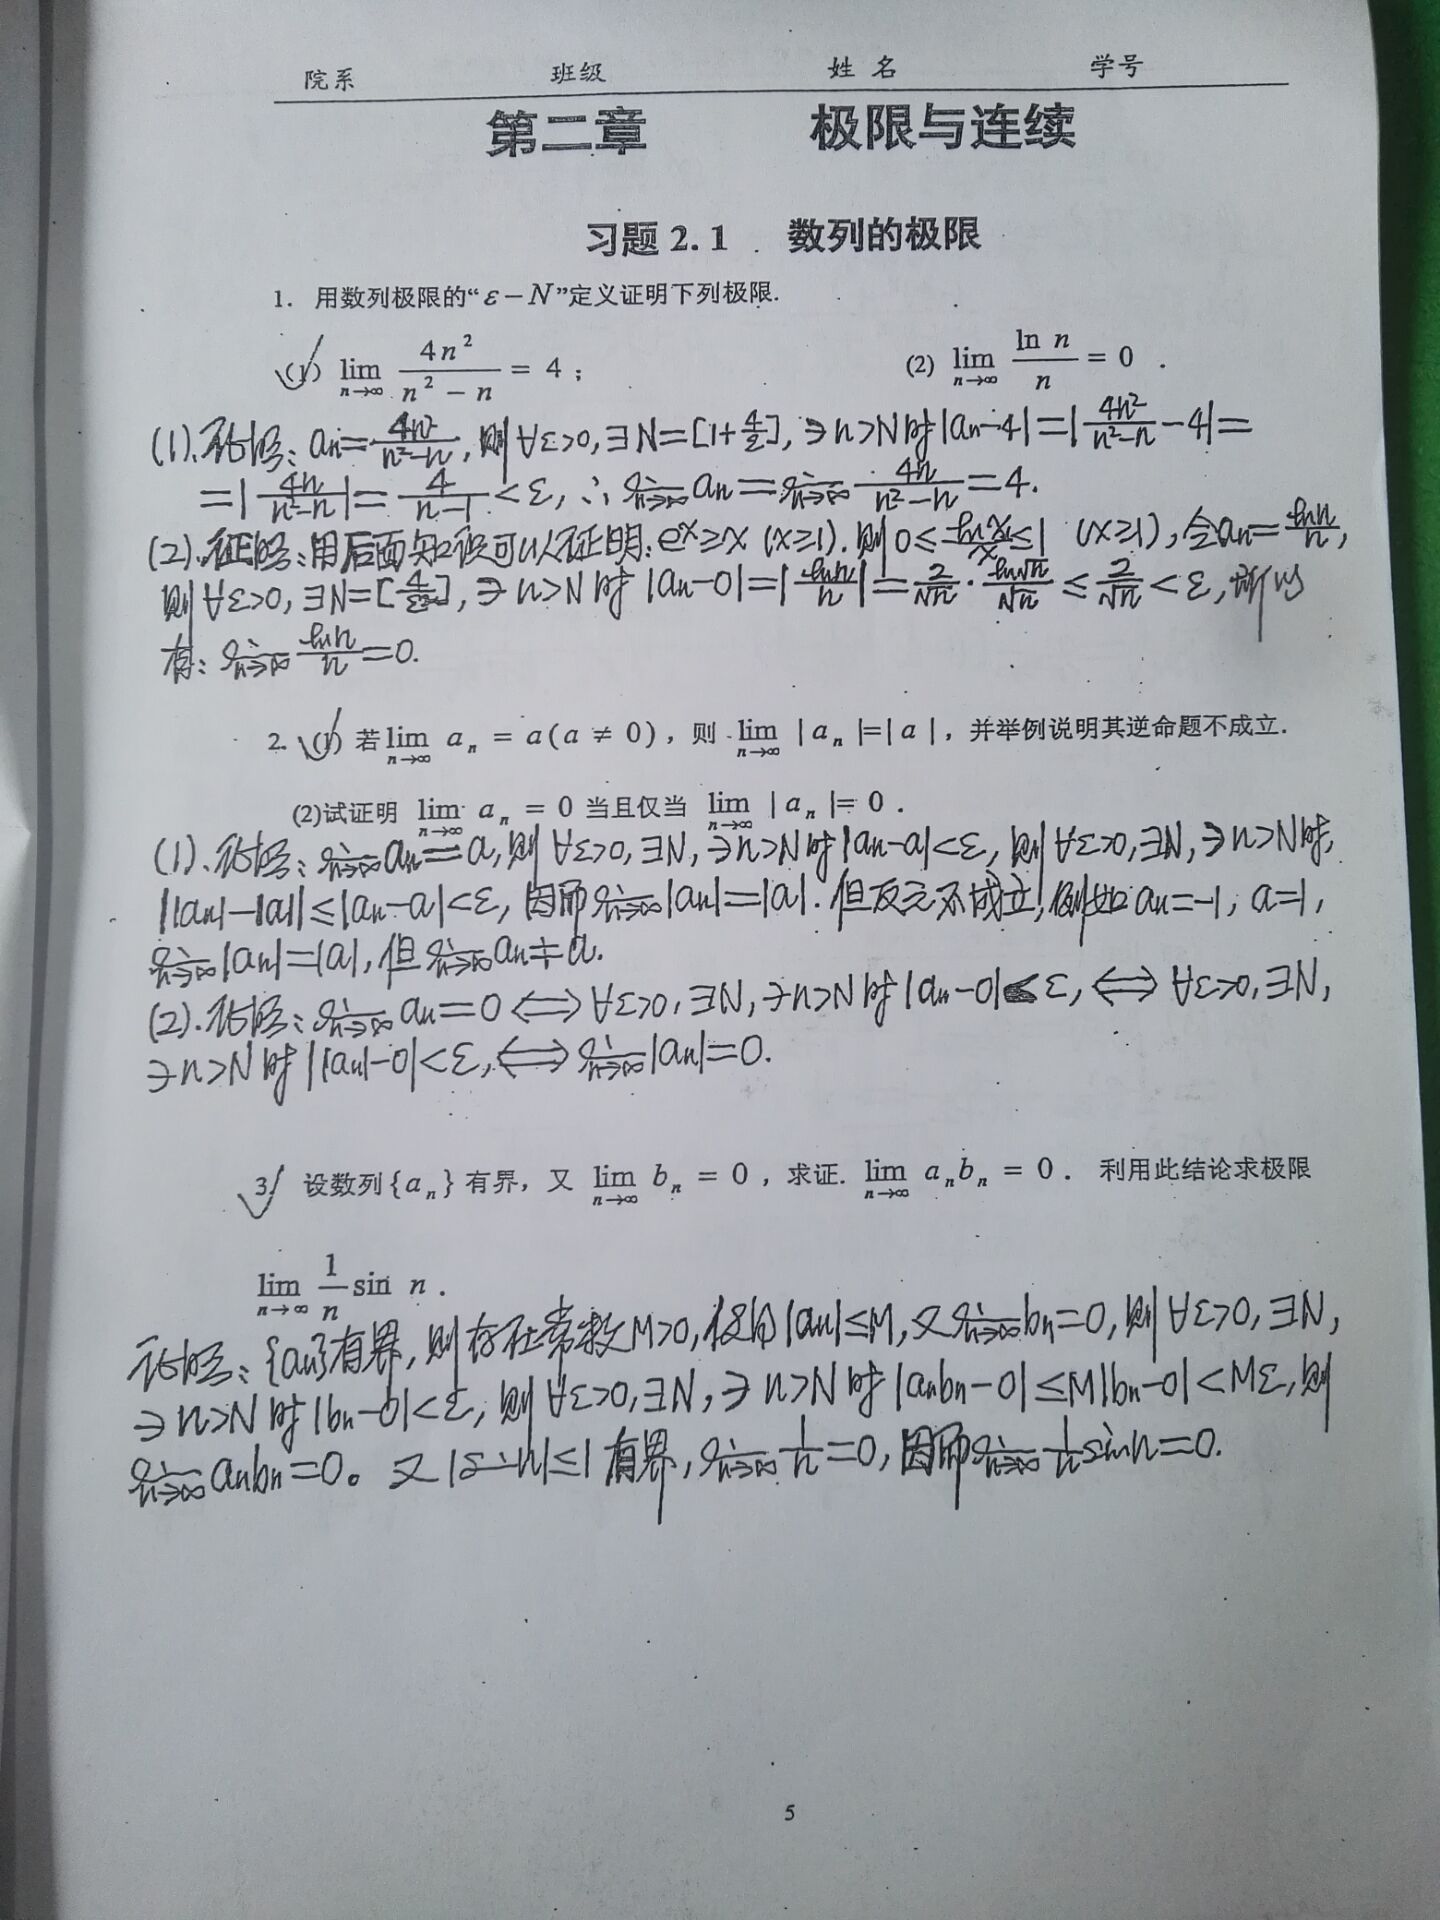 院系 班级 姓名 学号
第二章 极限与连续
习题2.1 数列的极限
1. 用数列极限的“ε－N”定义证明下列极限.
(1) lim_{n→∞} 4n²/(n²－n) = 4； (2) lim_{n→∞} ln n/n = 0.
(1).证明：an=4n²/(n²-n), 则∀ε>0,∃N=[1+4/ε],∋n>N时|an-4|=|4n²/(n²-n)-4|=
=|4n/(n²-n)|=4/(n-1)<ε, ∴lim_{n→∞} an=lim_{n→∞} 4n/(n²-n)=4.
(2).证明：用后面知识可以证明：eˣ≥x (x≥1). 则0≤ln x/x≤1 (x≥1), 令an=ln n/n,
则∀ε>0,∃N=[4/ε²],∋n>N时|an-0|=|ln n/n|=2/√n·ln√n/√n≤2/√n<ε, 所以
有：lim_{n→∞} ln n/n=0.
2. (1) 若lim_{n→∞} aₙ = a(a ≠ 0)，则 lim_{n→∞} |aₙ|=|a|，并举例说明其逆命题不成立.
(2)试证明 lim_{n→∞} aₙ = 0 当且仅当 lim_{n→∞} |aₙ|= 0.
(1).证明：lim_{n→∞} an=a,则∀ε>0,∃N,∋n>N时|an-a|<ε,则∀ε>0,∃N,∋n>N时,
||an|-|a||≤|an-a|<ε,因而lim_{n→∞}|an|=|a|.但反之不成立,例如an=-1,a=1,
lim_{n→∞}|an|=|a|,但lim_{n→∞} an≠a.
(2).证明：lim_{n→∞} an=0⟺∀ε>0,∃N,∋n>N时|an-0|<ε,⟺∀ε>0,∃N,
∋n>N时||an|-0|<ε,⟺lim_{n→∞}|an|=0.
3. 设数列{aₙ}有界，又 lim_{n→∞} bₙ = 0，求证. lim_{n→∞} aₙbₙ = 0. 利用此结论求极限
lim_{n→∞} 1/n sin n.
证明：{an}有界,则存在常数M>0,使得|an|≤M,又lim_{n→∞} bn=0,则∀ε>0,∃N,
∋n>N时|bn-0|<ε,则∀ε>0,∃N,∋n>N时|anbn-0|≤M|bn-0|<Mε,则
lim_{n→∞} anbn=0。又|sin n|≤1有界,lim_{n→∞} 1/n=0,因而lim_{n→∞} 1/n sin n=0.
5